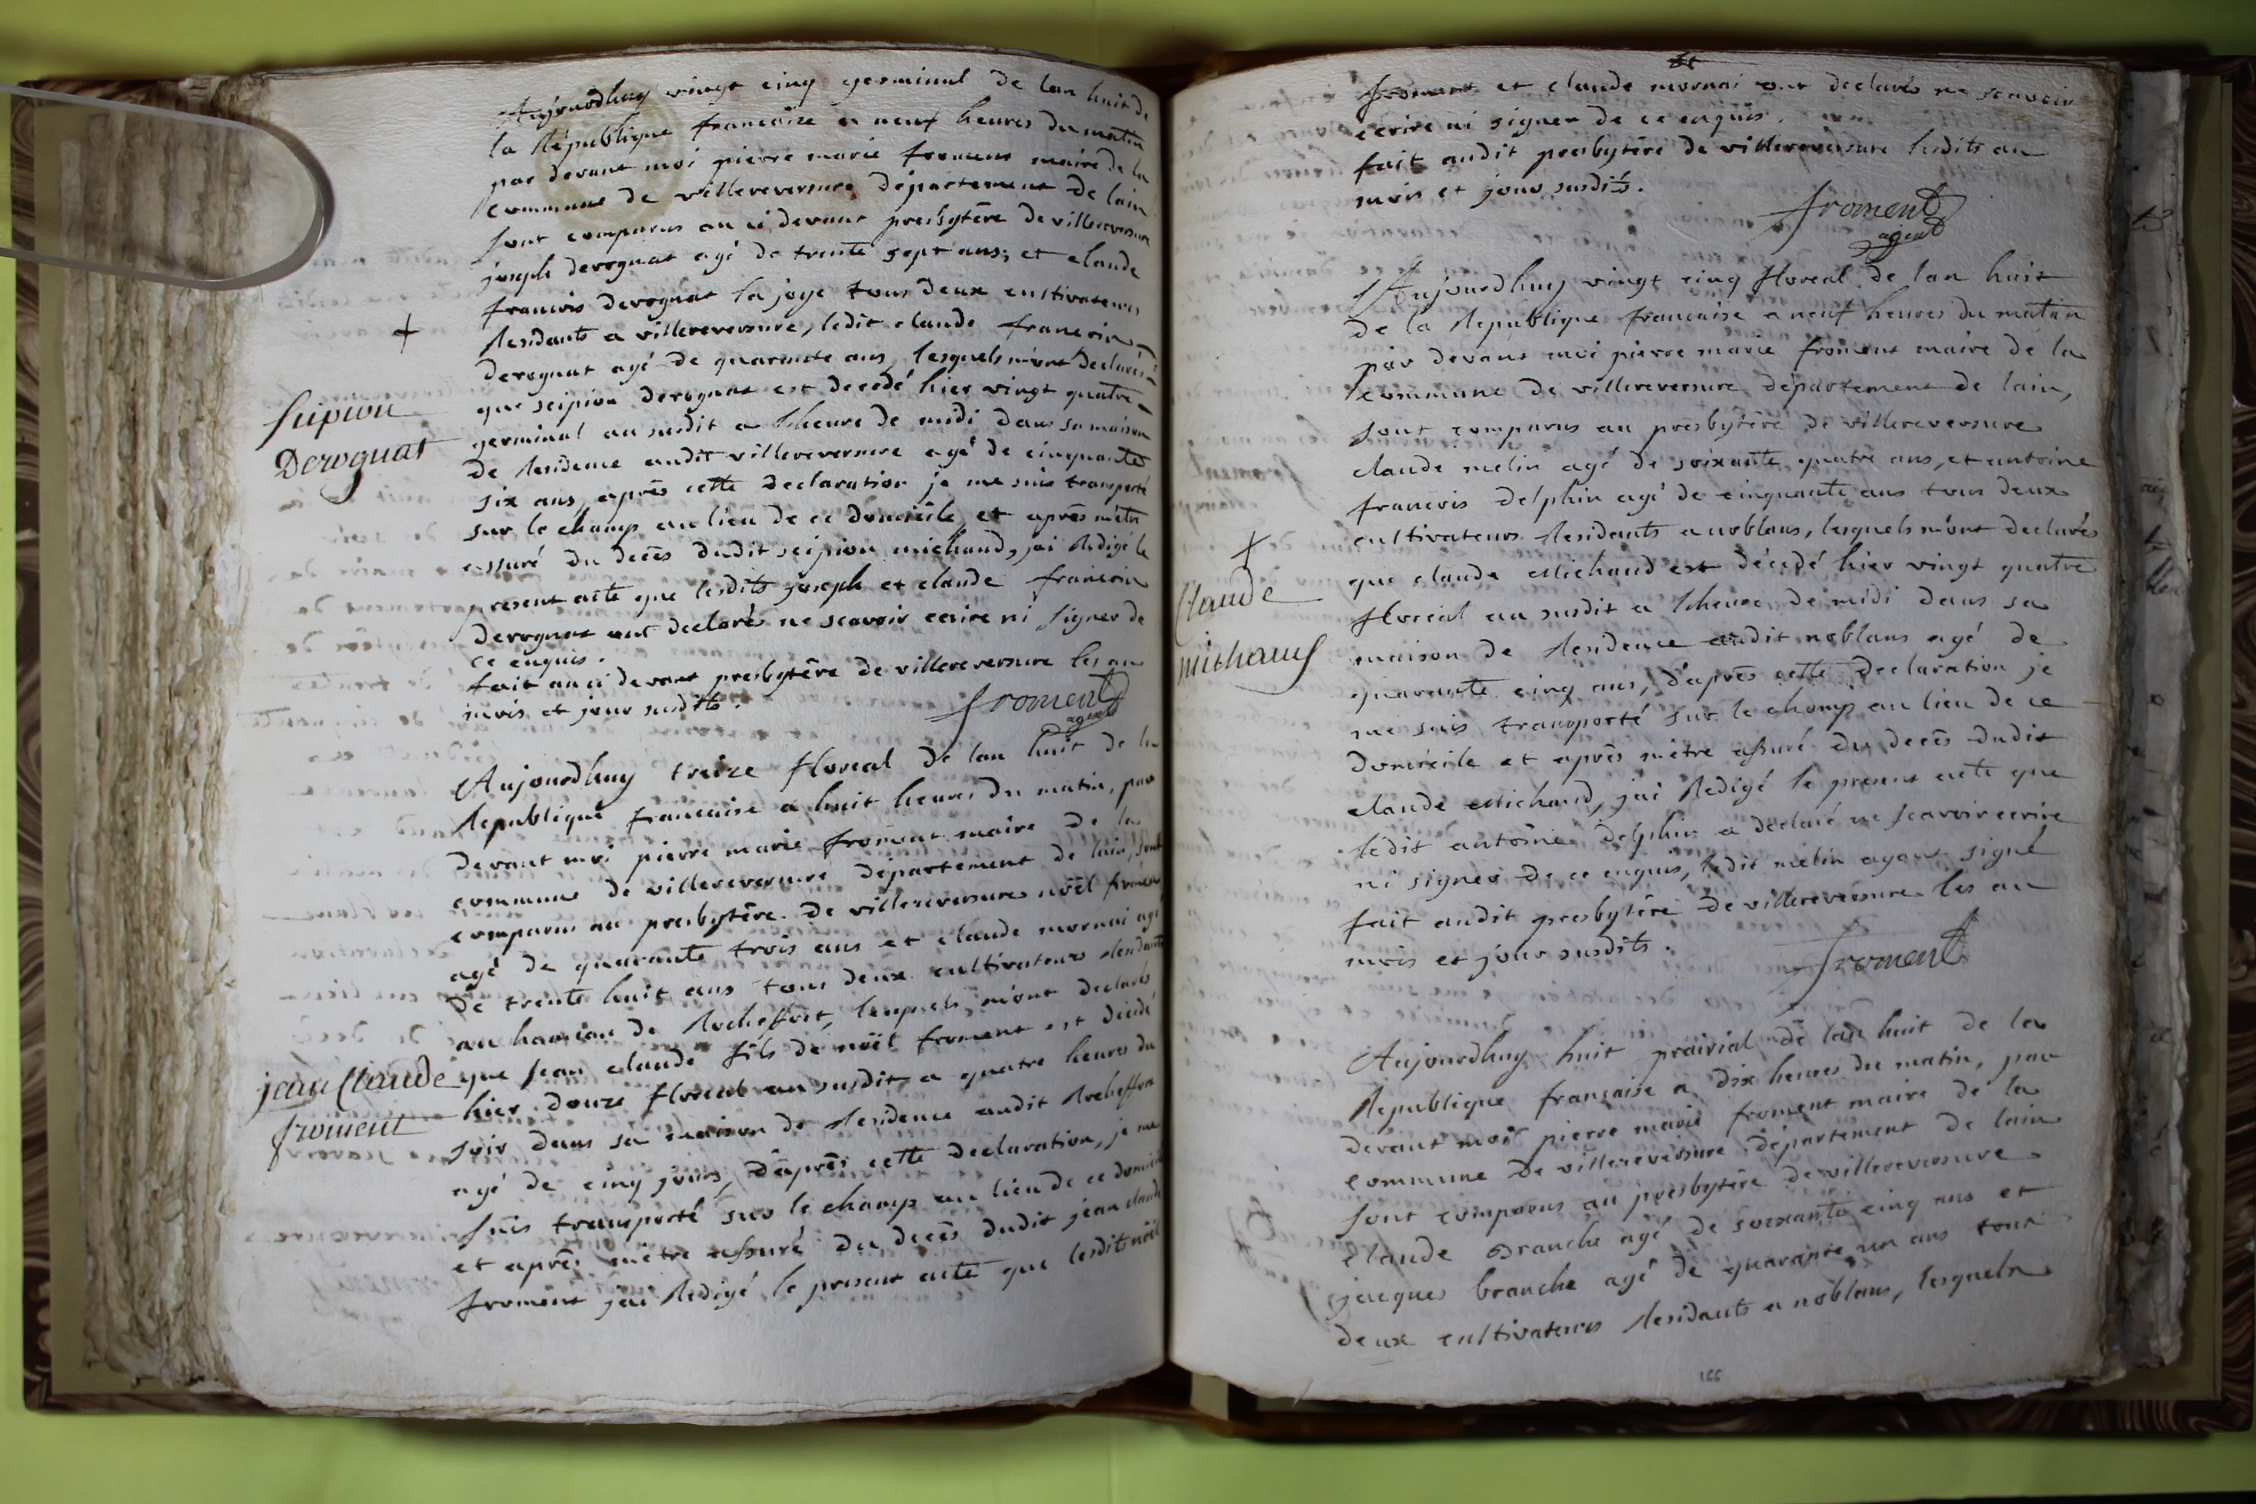 Aujourdhuy vingt cinq germinal de lan huit de
la République francaise a neuf heures du matin
par devant moi pierre marie froment maire de la
commune de villereversure département de lain
sont comparus au ci devant presbytère de villereversure
joseph derognat agé de trente sept ans, et claude
francois derognat la joye tous deux cultivateurs
Residants a villereversure, ledit claude francois
derognat agé de quarante ans, lesquels m'ont déclarés
que scipion derognat est decedé hier vingt quatre
germinal an susdit a lheure de midi dans sa maison
de Residence audit villereversure agé de cinquante
six ans, après cette declaration je me suis transporté
sur le champ au lieu de ce domicile et après m'etre
assuré du decès dudit scipion michaud, jai Redigé le
present acte que lesdits joseph et claude francois
derognat ont declarés ne scavoir ecrire ni signer de
ce enquis.
fait au ci devant presbytère de villereversure les an
mois et jour susdits.
froment
agent
+
Scipion
Derognat
Aujourdhuy treize floreal de lan huit de la
Republique francaise a huit heures du matin, par
devant moi pierre marie froment maire de la
commune de villereversure département de lain, sont
comparus au presbytère de villereversure noël froment
agé de quarante trois ans et claude mornai agé
de trente huit ans tous deux cultivateurs Residants
au hameau de Rocheffort, lesquels m'ont declarés
que jean claude fils de noël froment est decedé
hier douze floreal an susdit a quatre heures du
soir dans sa maison de Residence audit Rocheffort
agé de cinq jours, d'après cette declaration, je me
suis transporté sur le champ au lieu de ce domicile
et après m'etre assuré du decès dudit jean claude
froment jai Redigé le present acte que lesdits noël
jean Claude
froment
froment et claude mornai ont declarés ne scavoir
ecrire ni signer de ce enquis.
fait audit presbytère de villereversure lesdits an
mois et jour susdits.
froment
agent
Aujourdhuy vingt cinq floreal de lan huit
de la Republique francaise a neuf heures du matin
par devant moi pierre marie froment maire de la
commune de villereversure département de lain,
sont comparus au presbytère de villereversure
claude melin agé de soixante quatre ans, et antoine
francois delphin agé de cinquante ans tous deux
cultivateurs Residants a noblans, lesquels m'ont declarés
que claude Michaud est décédé hier vingt quatre
floreal an susdit a lheure de midi dans sa
maison de Residence audit noblans agé de
quarante cinq ans, d'après cette declaration je
me suis transporté sur le champ au lieu de ce
domicile et après m'etre assuré du decès dudit
claude Michaud, jai Redigé le present acte que
ledit antoine delphin a declaré ne scavoir ecrire
ni signer de ce enquis, ledit melin ayant signé
fait audit presbytère de villereversure les an
mois et jour susdits.
froment
+
Claude
michaud
Aujourdhuy huit prairial de lan huit de la
Republique française a dix heures du matin, par
devant moi pierre marie froment maire de la
commune de villereversure département de lain
sont comparus au presbytère de villereversure
claude branche agé de soixante cinq ans et
jacques branche agé de quarante un ans tous
deux cultivateurs Residants a noblans, lesquels
166